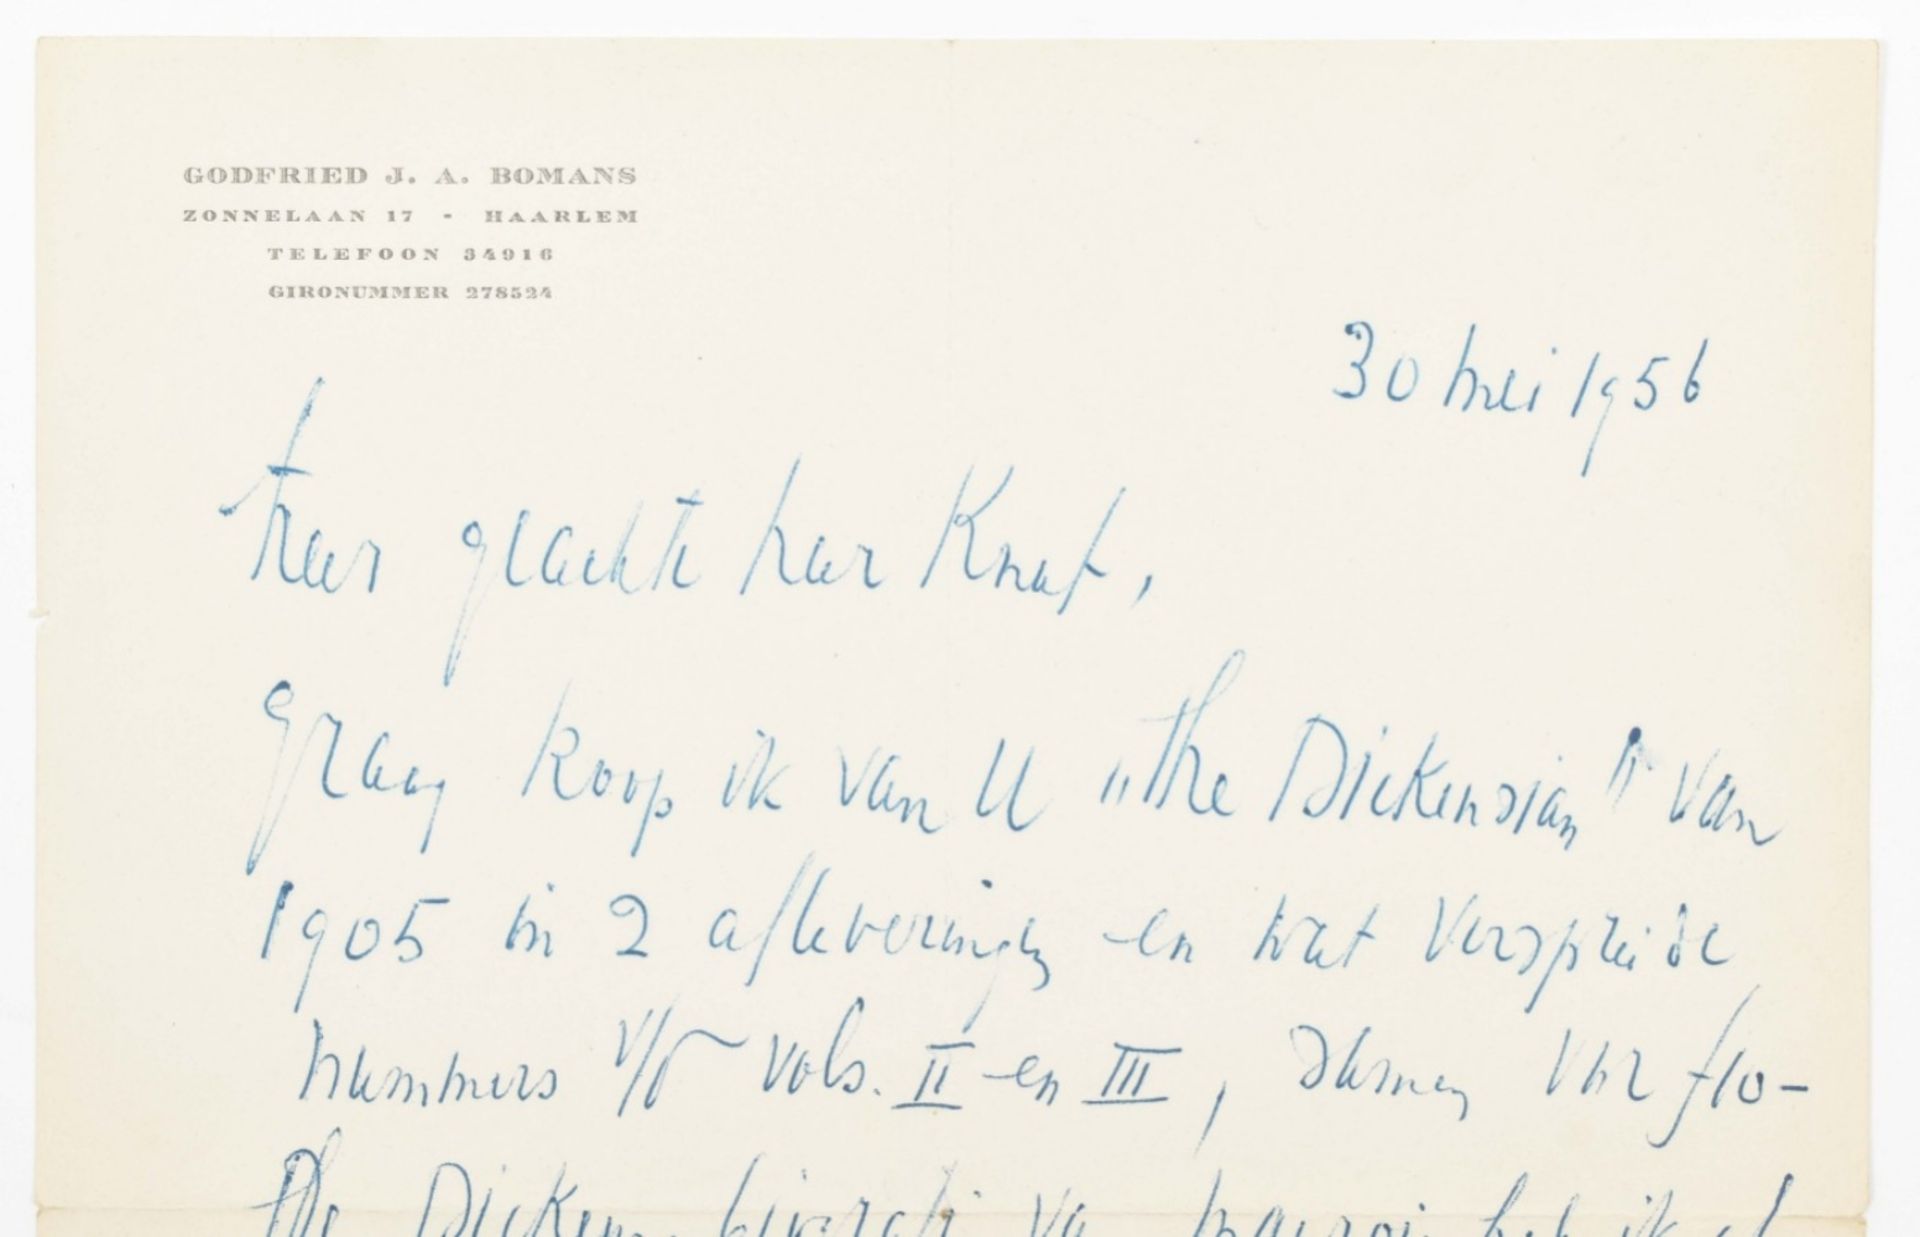 GODFRIED J. A. BOMANS
ZONNELAAN 17 - HAARLEM
TELEFOON 34916
GIRONUMMER 278524
30 mei 1956
Zeer geachte heer Knuf,
Graag koop ik van U „The Dickensian" van
1905 in 2 afleveringen en wat verspreide
nummers v/d vols. II en III, samen voor f 10-
The Dickens biografie van Maurois heb ik al